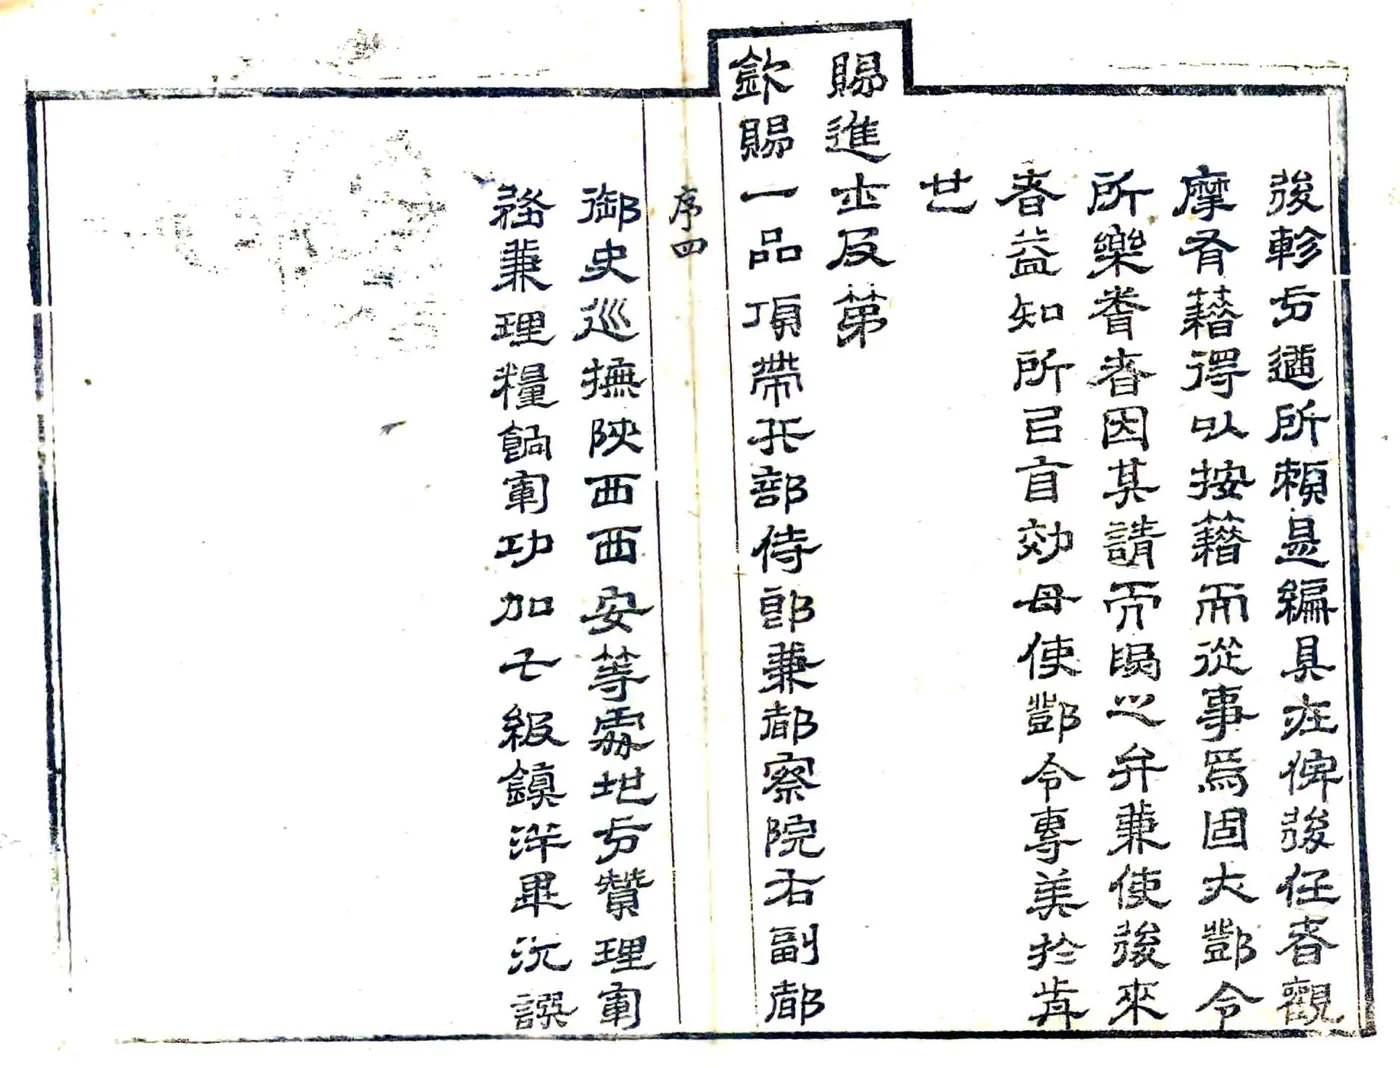 後軫方遒所賴是編具在俾後任者觀
摩有藉得以按籍而從事焉固大鄷令
所樂胥者因其請而賜之弁兼使後來
者益知所㠯自効毋使鄷令專美於前
也
賜進士及第
欽賜一品頂帶兵部侍郎兼都察院右副都
序四
御史巡撫陝西西安等處地方贊理軍
務兼理糧餉軍功加七級鎮洋畢沅譔